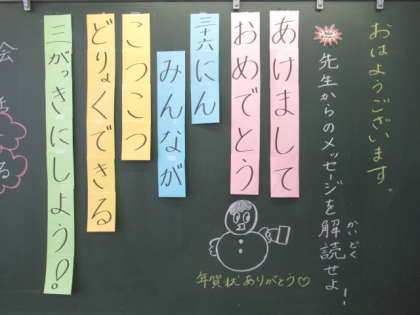 おはようございます。
先生からのメッセージを解読せよ!
かいどく
あけまして
おめでとう
三十六にん
みんなが
こつこつ
どりょくできる
三がっきにしよう!
年賀状ありがとう♡
会